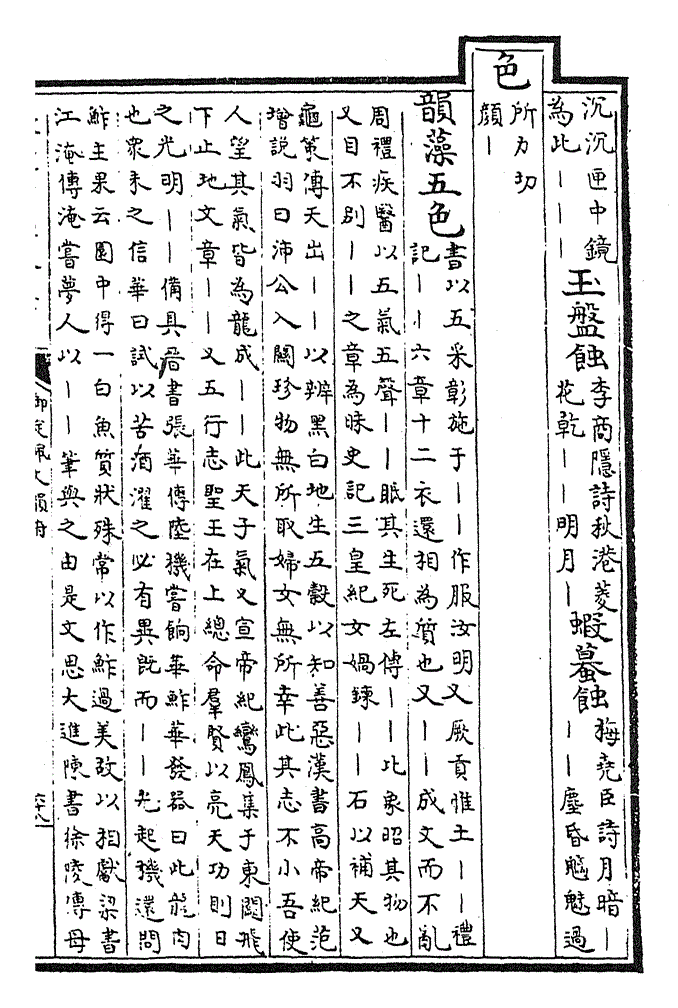 沉沉匣中鏡
為此｜｜｜
玉盤蝕
李商隱詩秋港菱
花乾｜｜明月｜
蝦蟇蝕
梅堯臣詩月暗｜
｜｜塵昏魑魅過
色
所力切
顔｜
韻藻五色
書以五采彰施于｜｜作服汝明又厥貢惟土｜｜禮
記｜｜六章十二衣還相為質也又｜｜成文而不亂
周禮疾醫以五氣五聲｜｜眡其生死左傳｜｜比象昭其物也
又目不别｜｜之章為昧史記三皇紀女媧鍊｜｜石以補天又
龜策傳天出｜｜以辨黑白地生五穀以知善惡漢書高帝紀范
增説羽曰沛公入關珍物無所取婦女無所幸此其志不小吾使
人望其氣皆為龍成｜｜此天子氣又宣帝紀鸞鳳集于東闕飛
下止地文章｜｜又五行志聖王在上總命羣賢以亮天功則日
之光明｜｜備具晉書張華傳陸機嘗餉華鮓華發器曰此龍肉
也衆未之信華曰試以苦酒濯之必有異既而｜｜光起機還問
鮓主果云園中得一白魚質狀殊常以作鮓過美故以相獻梁書
江淹傳淹嘗夢人以｜｜筆與之由是文思大進陳書徐陵傳母
御定佩文韻府